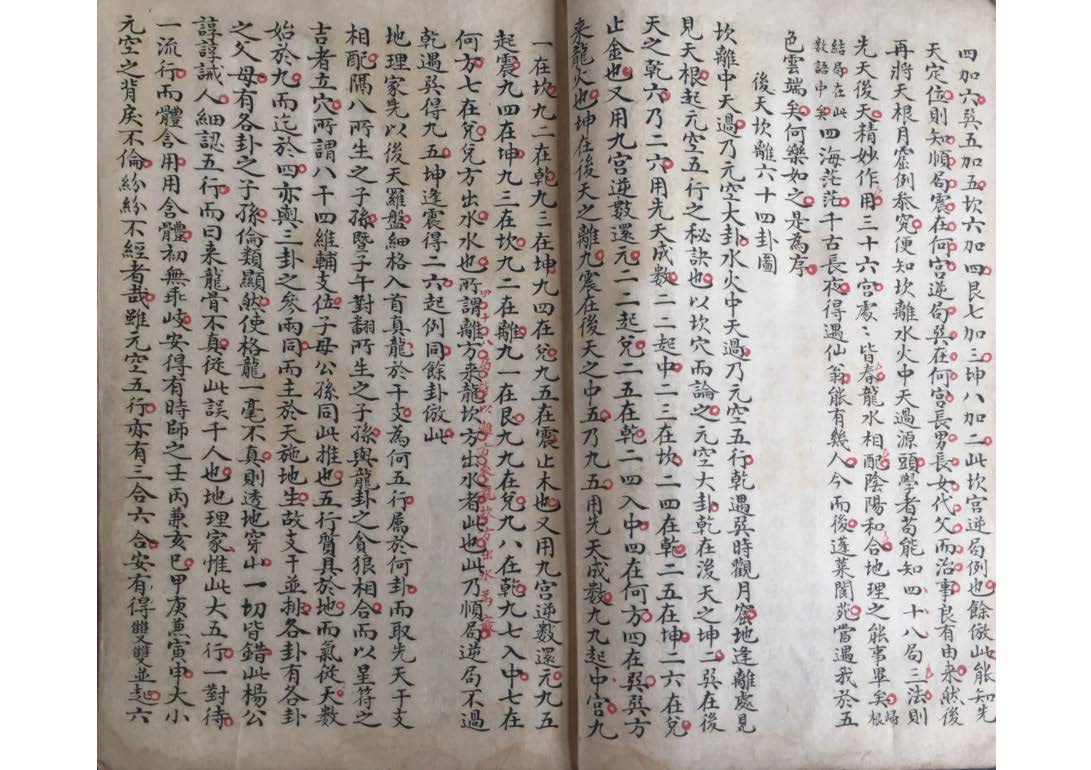 四加六巽五加五坎六加四艮七加三坤八加二此坎宫逆局例也餘倣此能知先
天定位則知順局震在何宫逆局巽在何宫長男長女代父而治事良有由来然後
再將天根月窟例叅究便知坎離水火中天過源頭學者苟能知四十八局三法則
先天後天精妙作用三十六宫處〻皆春龍水相配陰陽和合地理之能事畢矣歸根
結局在此数語中矣四海茫茫千古長夜得遇仙翁能有幾人今而後蓬莱閬苑當遇我於五
色雲端矣何樂如之是為序
後天坎離六十四卦圖
坎離中天過乃元空大卦水火中天過乃元空五行乾遇巽時觀月窟地逢離處見
見天根起元空五行之秘訣也以坎穴而論之元空大卦乾在後天之坤二巽在後
天之乾六乃二六用先天成數二二起中二三在坎二四在乾二五在坤二六在兌
止金也又用九宫逆数還元二二起兌二五在乾二四入中四在何方四在巽巽方
来龍火也坤在後天之離九震在後天之中五乃九五用先天成數九九起中宫九
一在坎九二在乾九三在坤九四在兌九五在震止木也又用九宫逆数還元九五
起震九四在坤九三在坎九二在離九一在艮九九在兌九八在乾九七入中七在
何方七在兌兌方出水水也所謂離方来龍坎方出水者此也此乃順局逆局不過
乾遇巽得九五坤逢震得二六起例同餘卦倣此
地理家先以後天羅盤細格入首真龍於干支為何五行属於何卦而取先天干支
相配隔八所生之子孫暨子午對翻所生之子孫與龍卦之貪狼相合而以星符之
吉者立穴所謂八干四維輔支位子母公孫同此推也五行質具於地而氣從天數
始於九而迄於四亦與三卦之參兩同而主於天施地生故支干並排各卦有各卦
之父母有各卦之子孫倫類顯然使格龍一毫不真則透地穿山一切皆錯此楊公
諄諄誡人細認五行而曰来龍骨不真從此誤千人也地理家惟此大五行一對待
一流行而體含用用含體初無乖歧安得有時師之壬丙兼亥巳甲庚兼寅申大小
元空之背戾不倫紛紛不經者哉雖元空五行亦有三合六合安有得雙雙並起六